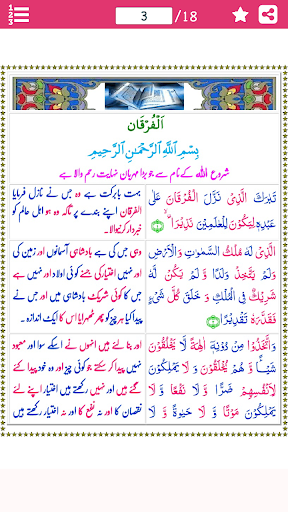 3 /18
اَلْفُرْقَان
بِسْمِ اللّٰهِ الرَّحْمٰنِ الرَّحِیْمِ
شروع اللہ کے نام سے جو بڑا مہربان نہایت رحم والا ہے
تَبٰرَكَ الَّذِیْ نَزَّلَ الْفُرْقَانَ عَلٰی
عَبْدِهٖ لِیَكُوْنَ لِلْعٰلَمِیْنَ نَذِیْرَا ۙ﴿۱﴾
بہت بابرکت ہے وہ جس نے نازل فرمایا
الفرقان اپنے بندے پر تاکہ ہو وہ اہل عالم کو
خبردار کرنیوالا۔
الَّذِیْ لَهٗ مُلْكُ السَّمٰوٰتِ وَالْاَرْضِ
وَلَمْ یَتَّخِذْ وَلَدًا وَّ لَمْ یَكُنْ لَّهٗ
شَرِیْكٌ فِی الْمُلْكِ وَ خَلَقَ كُلَّ شَیْءٍ
فَقَدَّرَهٗ تَقْدِیْرًا ﴿۲﴾
وہی جس کی ہے بادشاہی آسمانوں اور زمین کی
اور نہیں اختیار کی جس نے کوئی اولاد اور نہیں ہے
جس کا کوئی شریک بادشاہی میں اور جس نے
پیدا کیا ہر چیز کو پھر ٹھہرایا اس کا ایک اندازہ۔
وَاتَّخَذُوْا مِنْ دُوْنِهٖۤ اٰلِهَةً لَّا یَخْلُقُوْنَ
شَیْـًٔا وَّ هُمْ یُخْلَقُوْنَ وَ لَا یَمْلِكُوْنَ
لِاَنْفُسِهِمْ ضَرًّا وَّ لَا نَفْعًا وَّ لَا
یَمْلِكُوْنَ مَوْتًا وَّ لَا حَیٰوةً وَّ لَا
اور بنا لئے ہیں انہوں نے اسکے سوا اور معبود
نہیں پیدا کر سکتے جو کوئی چیز اور وہ خود پیدا کئے
گئے ہیں اور نہیں اختیار رکھتے ہیں اپنے لئے
نقصان کا اور نہ نفع کا اور نہ اختیار رکھتے ہیں